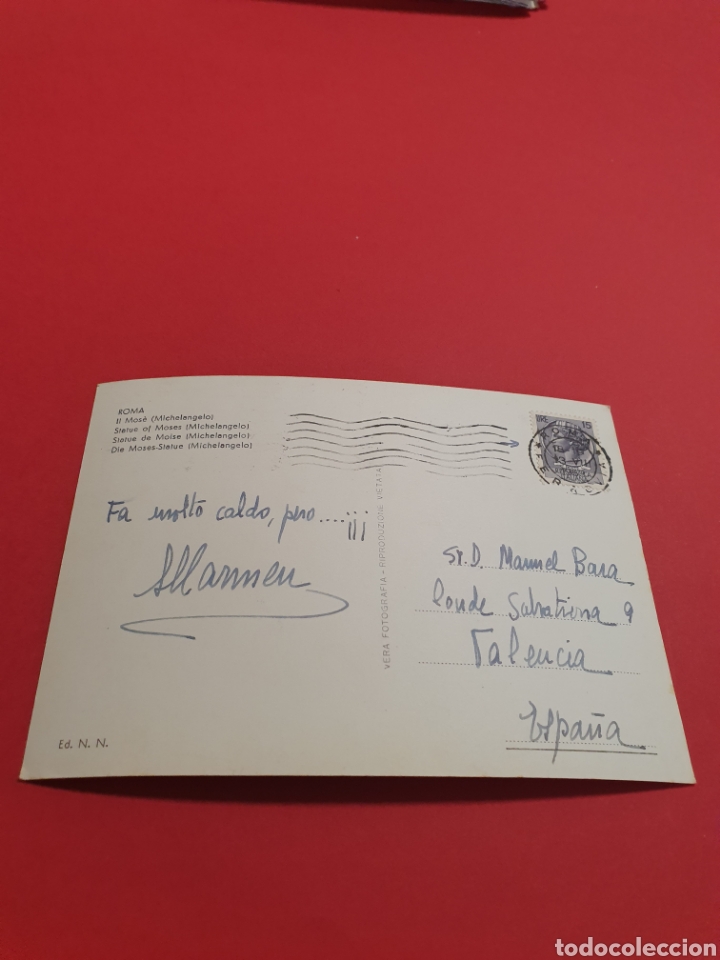 ROMA
Il Mosé (Michelangelo)
Statue of Moses (Michelangelo)
Statue de Moise (Michelangelo)
Die Moses-Statue (Michelangelo)
15
Fa molto caldo, pero....¡¡¡
VERA FOTOGRAFIA - RIPRODUZIONE VIETATA
Sr. D. Manuel Bara
Conde Salvatierra 9
Valencia
España
Ed. N. N.
todocoleccion